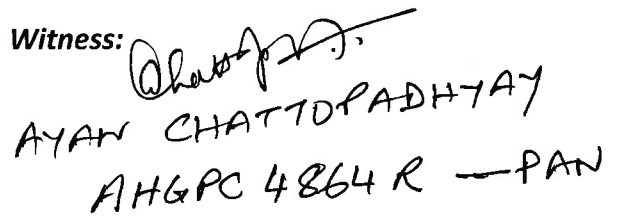 Witness:
AYAN CHATTOPADHYAY
AHGPC 4864 R — PAN